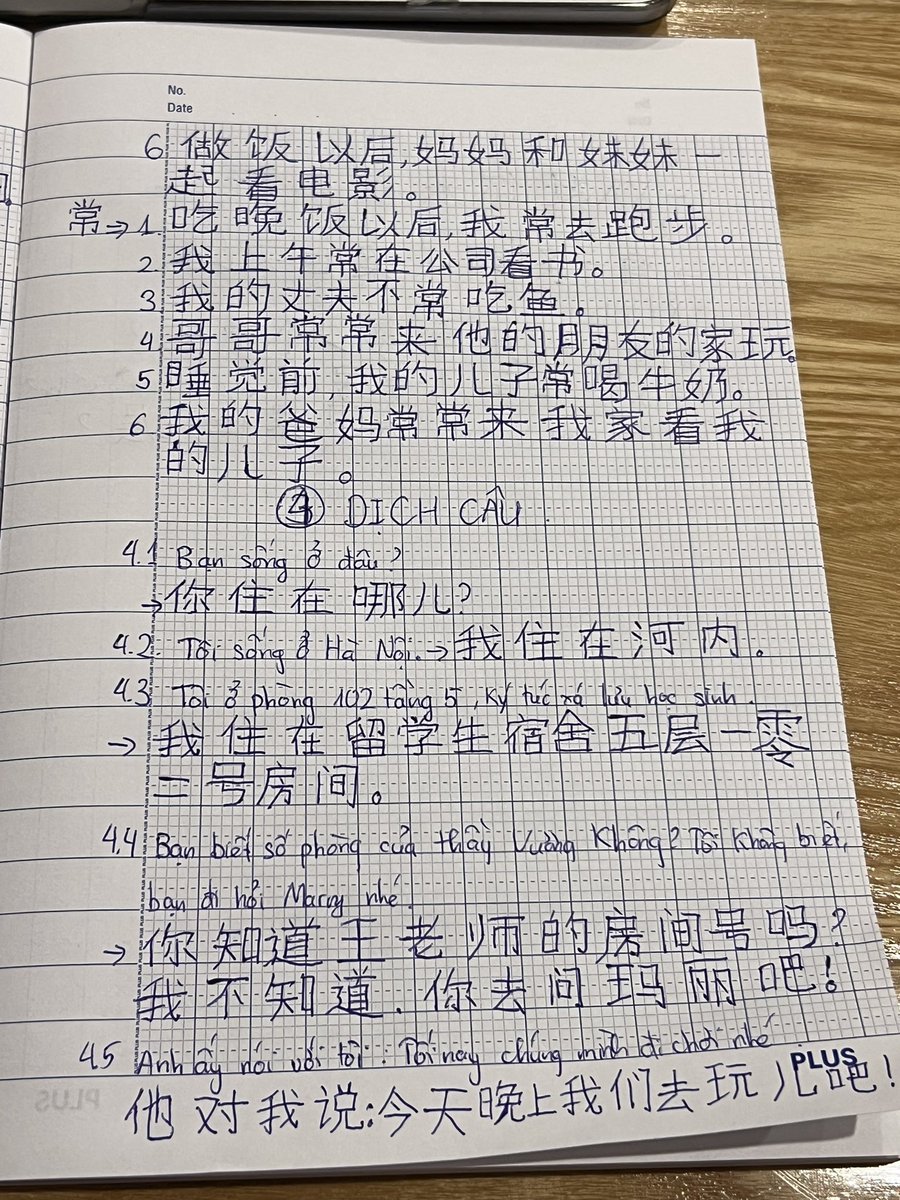 No.
Date
6 做饭以后,妈妈和妹妹一
起看电影。
常→ 1. 吃晚饭以后,我常去跑步。
2. 我上午常在公司看书。
3 我的丈夫不常吃鱼。
4 哥哥常常来他的朋友的家玩。
5 睡觉前,我的儿子常喝牛奶。
6 我的爸妈常常来我家看我
的儿子。
④ DỊCH CÂU
4.1 Bạn sống ở đâu?
→你住在哪儿?
4.2. Tôi sống ở Hà Nội.→我住在河内。
4.3 Tôi ở phòng 102 tầng 5, Ký túc xá lưu học sinh.
→ 我住在留学生宿舍五层一零
二号房间。
4.4 Bạn biết số phòng của thầy Vương không? Tôi không biết,
bạn đi hỏi Mary nhé.
→ 你知道王老师的房间号吗?
我不知道.你去问玛丽吧!
4.5 Anh ấy nói với tôi: Tối nay chúng mình đi chơi nhé
PLUS
他对我说:今天晚上我们去玩儿吧!